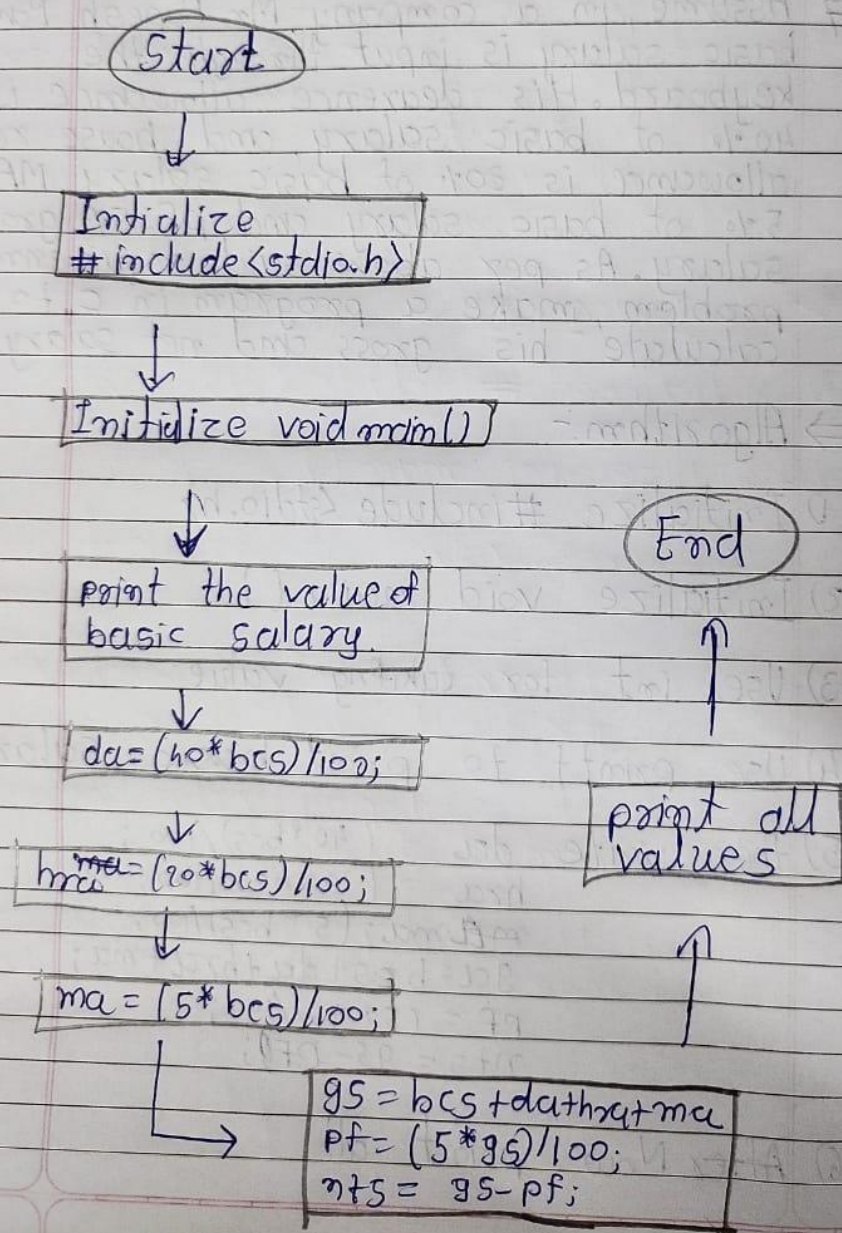 Start
Intialize
# include<stdio.h>
Initialize void main()
print the value of
basic salary.
da=(40*bcs)/100;
hra=(20*bcs)/100;
ma=(5*bcs)/100;
gs=bcs+da+hra+ma
pf=(5*gs)/100;
nts= gs-pf;
print all
values
End